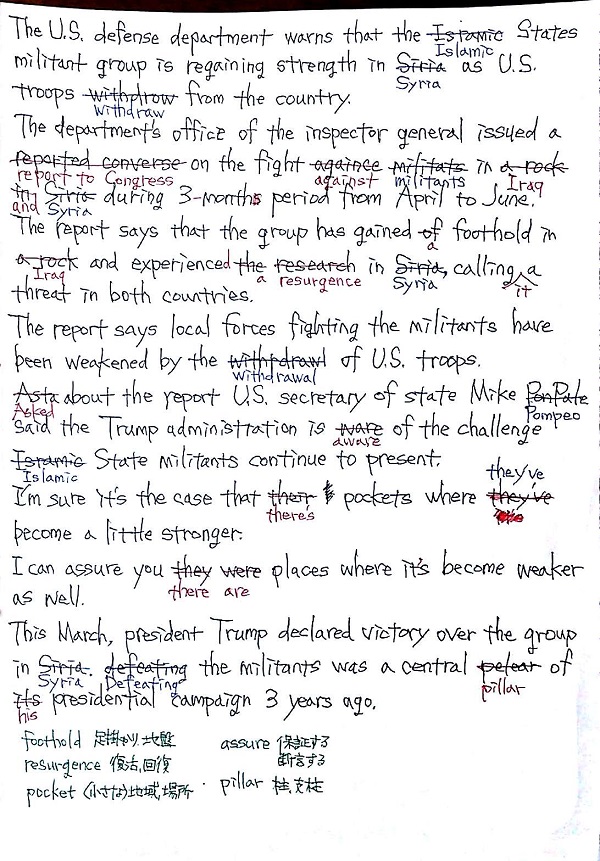 The U.S. defense department warns that the Istamic States
Islamic
militant group is regaining strength in Siria as U.S.
Syria
troops withdrow from the country.
withdraw
The department's office of the inspector general issued a
reported converse on the fight againce militats in a rock
report to Congress against militants Iraq
in Siria during 3-months period from April to June.
and Syria
The report says that the group has gained of foothold in
a
a rock and experienced the research in Siria, calling a
Iraq a resurgence Syria it
threat in both countries.
The report says local forces fighting the militants have
been weakened by the withpdrawl of U.S. troops.
withdrawal
Asta about the report U.S. secretary of state Mike PonPate
Asked Pompeo
said the Trump administration is ware of the challenge
aware
Isramic State militants continue to present.
Islamic they've
I'm sure it's the case that their pockets where they've
there's
become a little stronger.
I can assure you they were places where it's become weaker
there are
as well.
This March, president Trump declared victory over the group
in Siria. defeating the militants was a central pelear of
Syria Defeating pillar
its presidential campaign 3 years ago.
his
foothold 足掛かり、地盤 assure 保証する
resurgence 復活、回復 断言する
pocket (小さな)地域、場所 pillar 柱、支柱